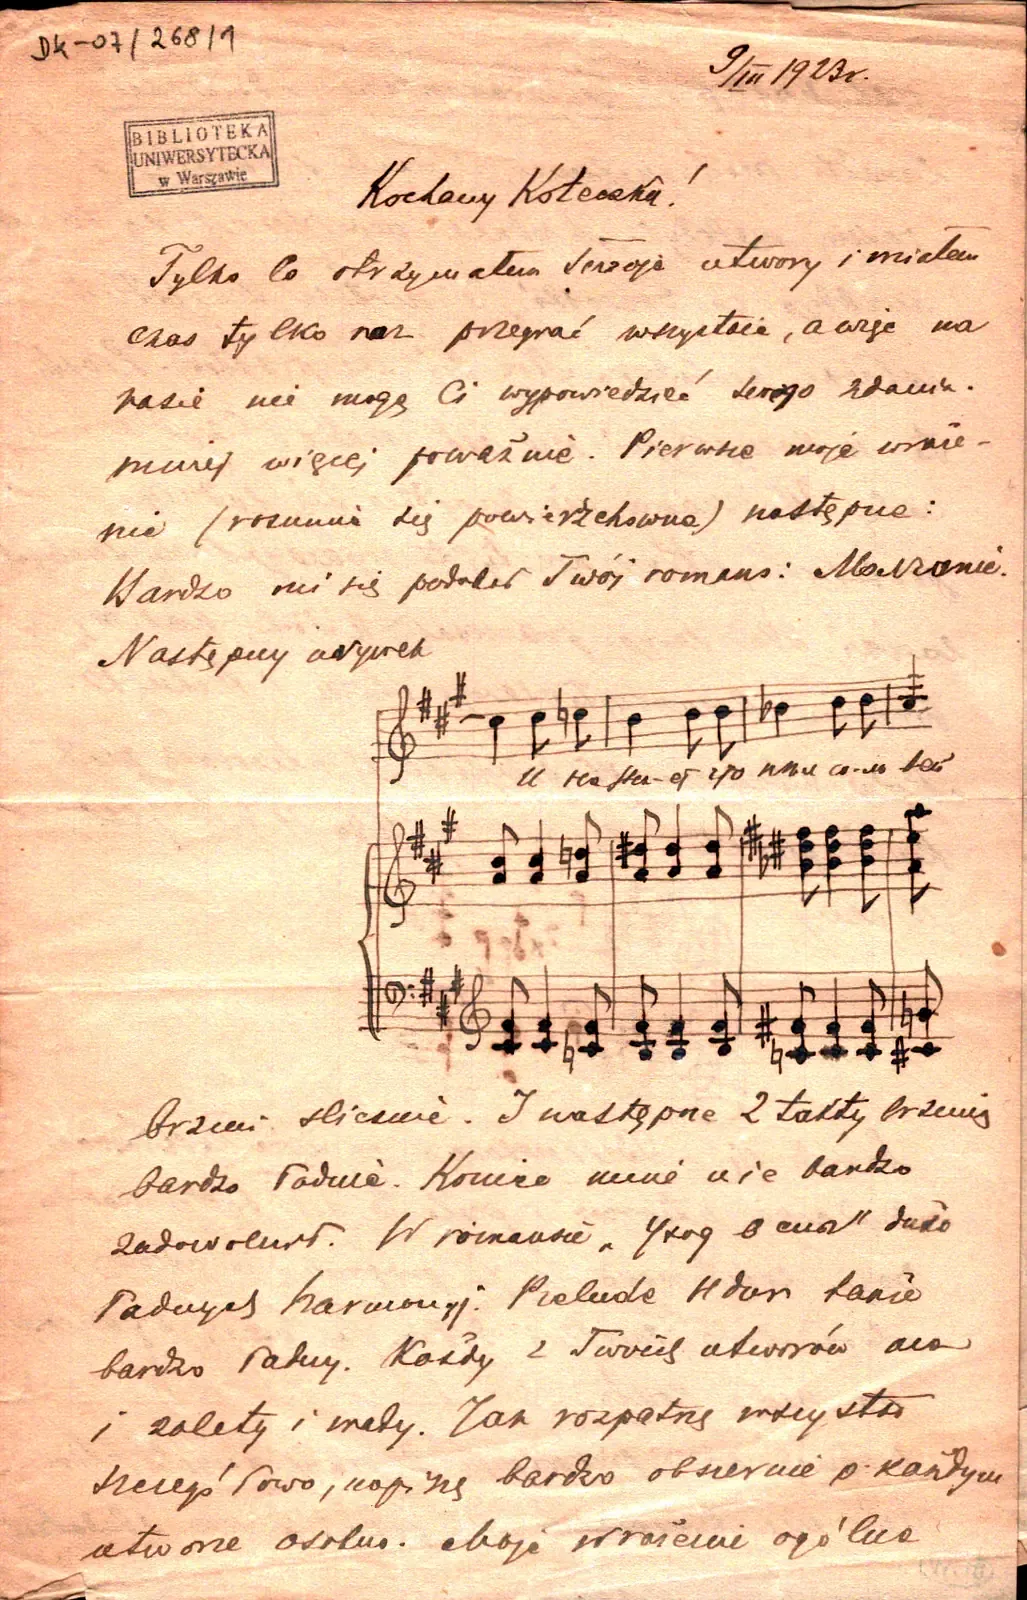 Dk-07/268/1
9/III 1923r.
BIBLIOTEKA
UNIWERSYTECKA
w Warszawie
Kochany Koteczku!
Tylko co otrzymałem Twoje utwory i miałem
czas tylko raz przegrać wszystkie, a więc na
razie nie mogę Ci wypowiedzieć swego zdania
mniej więcej poważnie. Pierwsze moje wraże-
nie (rozumie się powierzchowne) następne:
Bardzo mi się podobał Twój romans:
Następny urywek
brzmi ślicznie. I następne 2 takty brzmią
bardzo ładnie. Koniec mnie nie bardzo
zadowolnił. W romansie „ " dużo
ładnych harmonyj. Prelude H dur także
bardzo ładny. Każdy z Twoich utworów ma
i zalety i wady. Jak rozpatrzę wszystko
szczegółowo, napiszę bardzo obszernie o każdym
utworze osobno. Moje wrażenie ogólne